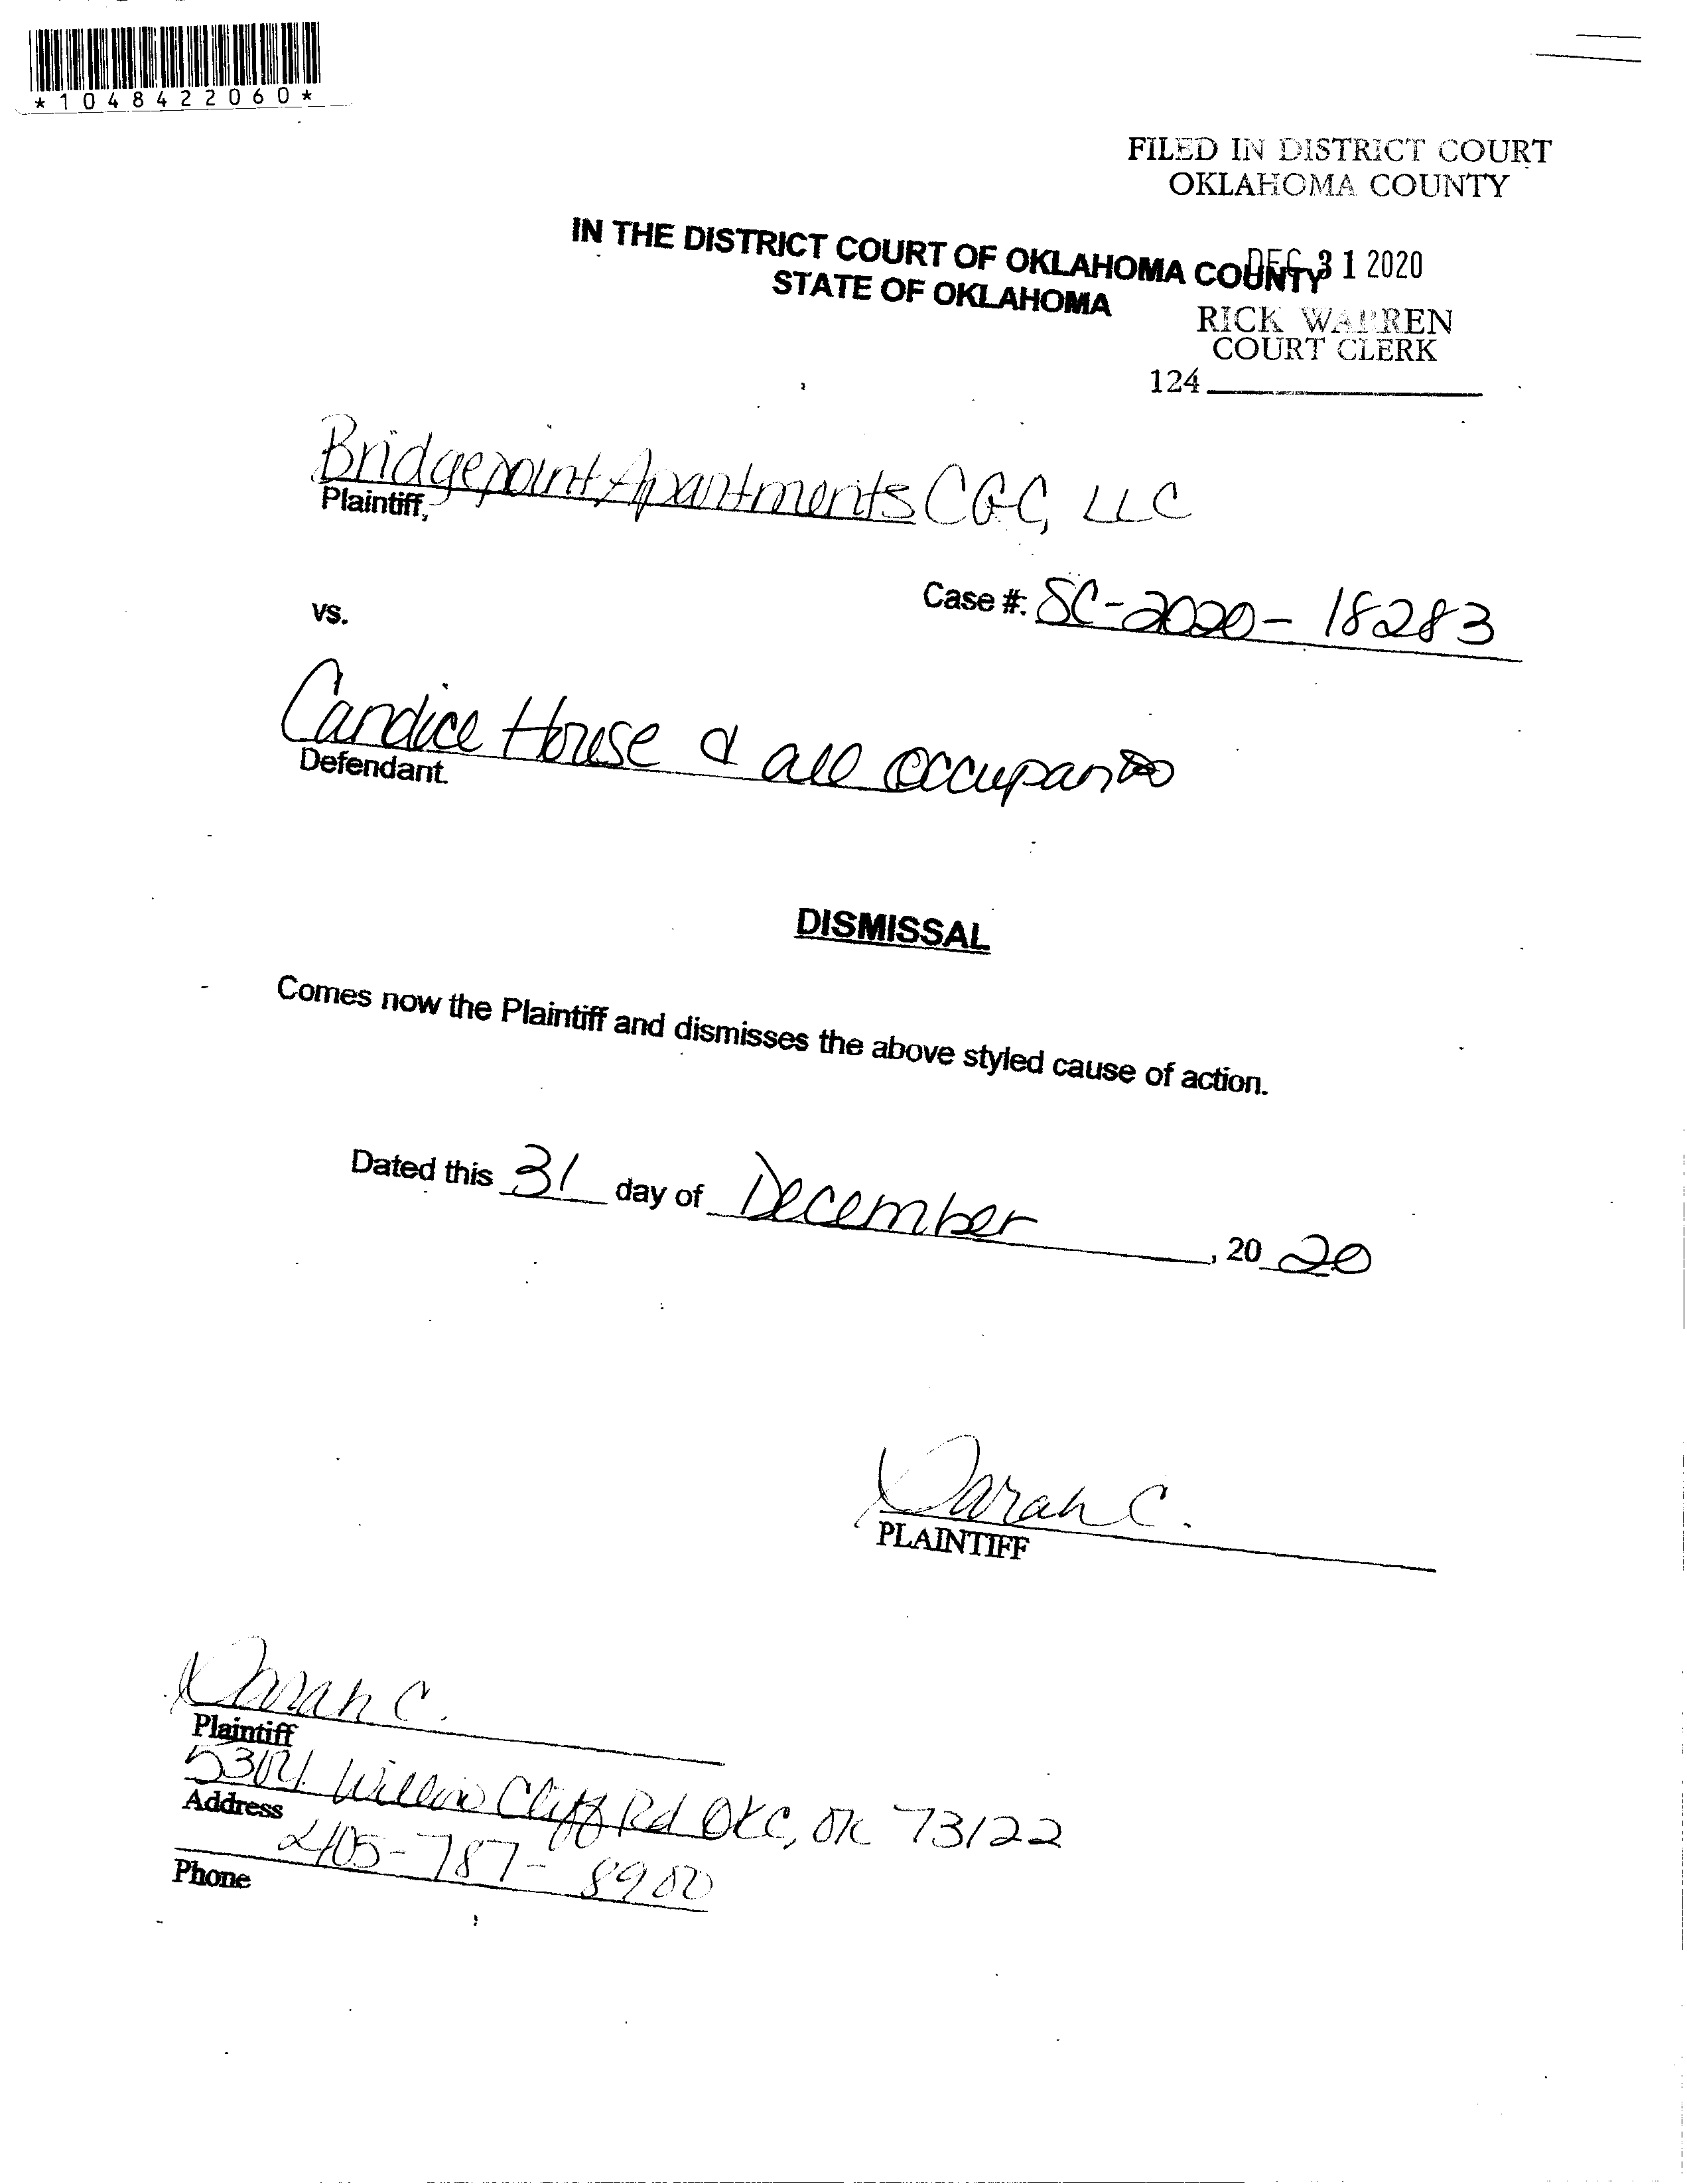 *1048422060*
FILED IN DISTRICT COURT
OKLAHOMA COUNTY
IN THE DISTRICT COURT OF OKLAHOMA COUNTY
DEC 31 2020
STATE OF OKLAHOMA
RICK WARREN
COURT CLERK
124
Bridgepoint Apartments CGC, LLC
Plaintiff,
Case #: SC-2020-18283
vs.
Candice House & all occupants
Defendant.
DISMISSAL
Comes now the Plaintiff and dismisses the above styled cause of action.
Dated this 31 day of December, 2020
Sarah C.
PLAINTIFF
Sarah C.
Plaintiff
Willow Cliff Rd OKC, OK 73122
Address
405-787-8900
Phone